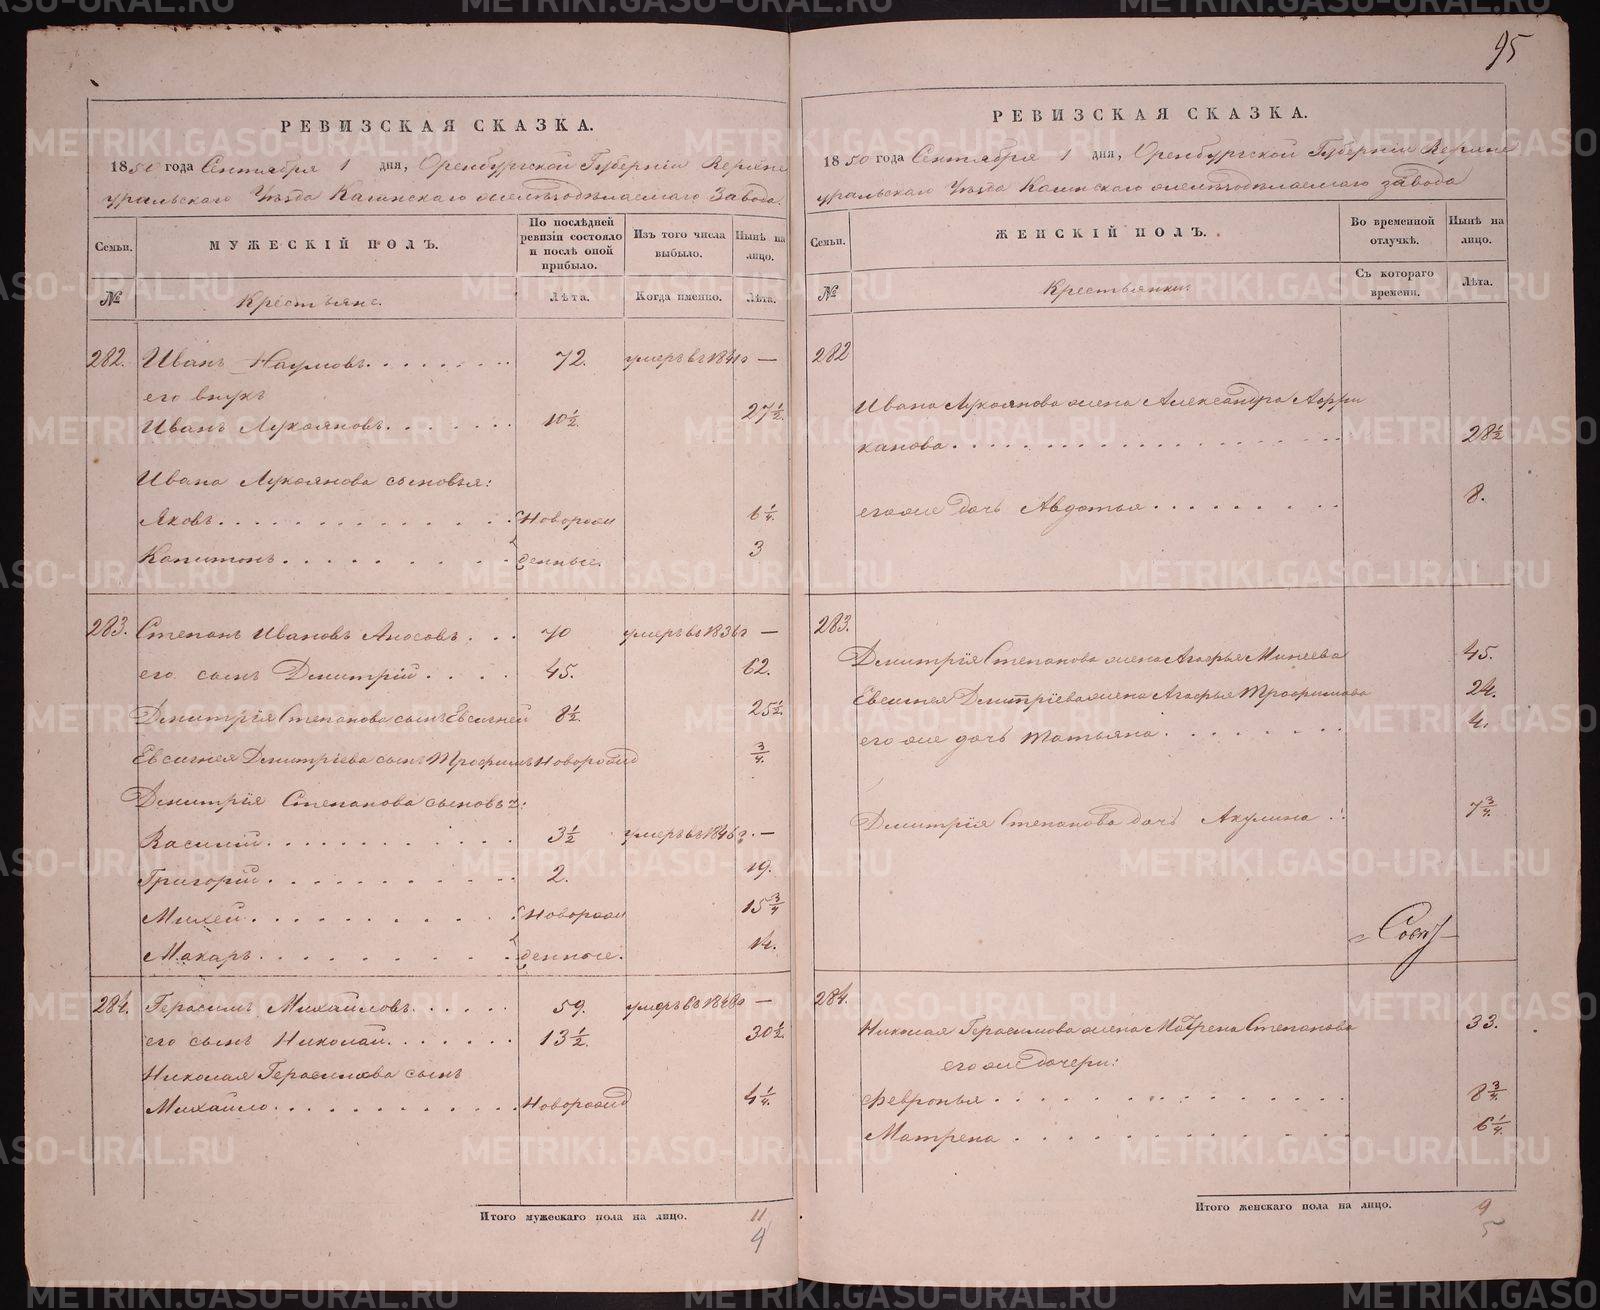 95
РЕВИЗСКАЯ СКАЗКА.
1850 года Сентября 1 дня, Оренбургской Губерніи Верхне
уральскаго Уѣзда Кагинскаго желѣзодѣлаемаго Завода.
Семьи.
МУЖЕСКІЙ ПОЛЪ.
По послѣдней ревизіи состояло и послѣ оной прибыло.
Изъ того числа выбыло.
Нынѣ на лицо.
№
Крестьяне.
Лѣта.
Когда именно.
Лѣта.
282. Иванъ Наумовъ 72. умеръ въ 1841г —
его внукъ
Иванъ Лукояновъ 10½ 27½
Ивана Лукоянова сыновья:
Яковъ Новорож 6¼
Капитонъ денные. 3
283. Степанъ Ивановъ Аносовъ 70 умеръ въ 1836г —
его сынъ Дмитрій 45. 62.
Дмитрія Степанова сынъ Евсигней 8½ 25½
Евсигнея Дмитріева сынъ Трофимъ Новорожд ¾
Дмитрія Степанова сыновья:
Василій 3½ умеръ въ 1846г. —
Григорій 2. 19.
Михей Новорож 15¾
Макаръ денные. 14.
284. Герасимъ Михайловъ 59. умеръ въ 1848г —
его сынъ Николай 13½ 30½
Николая Герасимова сынъ
Михайло Новорожд 4¼
Итого мужескаго пола на лицо. 11
9
РЕВИЗСКАЯ СКАЗКА.
1850 года Сентября 1 дня, Оренбургской Губерніи Верхне
уральскаго Уѣзда Кагинскаго желѣзодѣлаемаго завода
Семьи.
ЖЕНСКІЙ ПОЛЪ.
Во временной отлучкѣ.
Нынѣ на лицо.
№
Крестьянки:
Съ котораго времени.
Лѣта.
282
Ивана Лукоянова жена Александра Афри
канова 28½
его же дочь Авдотья 8.
283.
Дмитрія Степанова жена Агафья Минеева 45.
Евсигнея Дмитріева жена Агафья Трофимова 24.
его же дочь Татьяна 4.
Дмитрія Степанова дочь Акулина 7¾
284.
Николая Герасимова жена Матрена Степанова 33.
его же дочери:
Февронья 8¾
Матрена 6¼
Итого женскаго пола на лицо. 9
5
METRIKI.GASO-URAL.RU